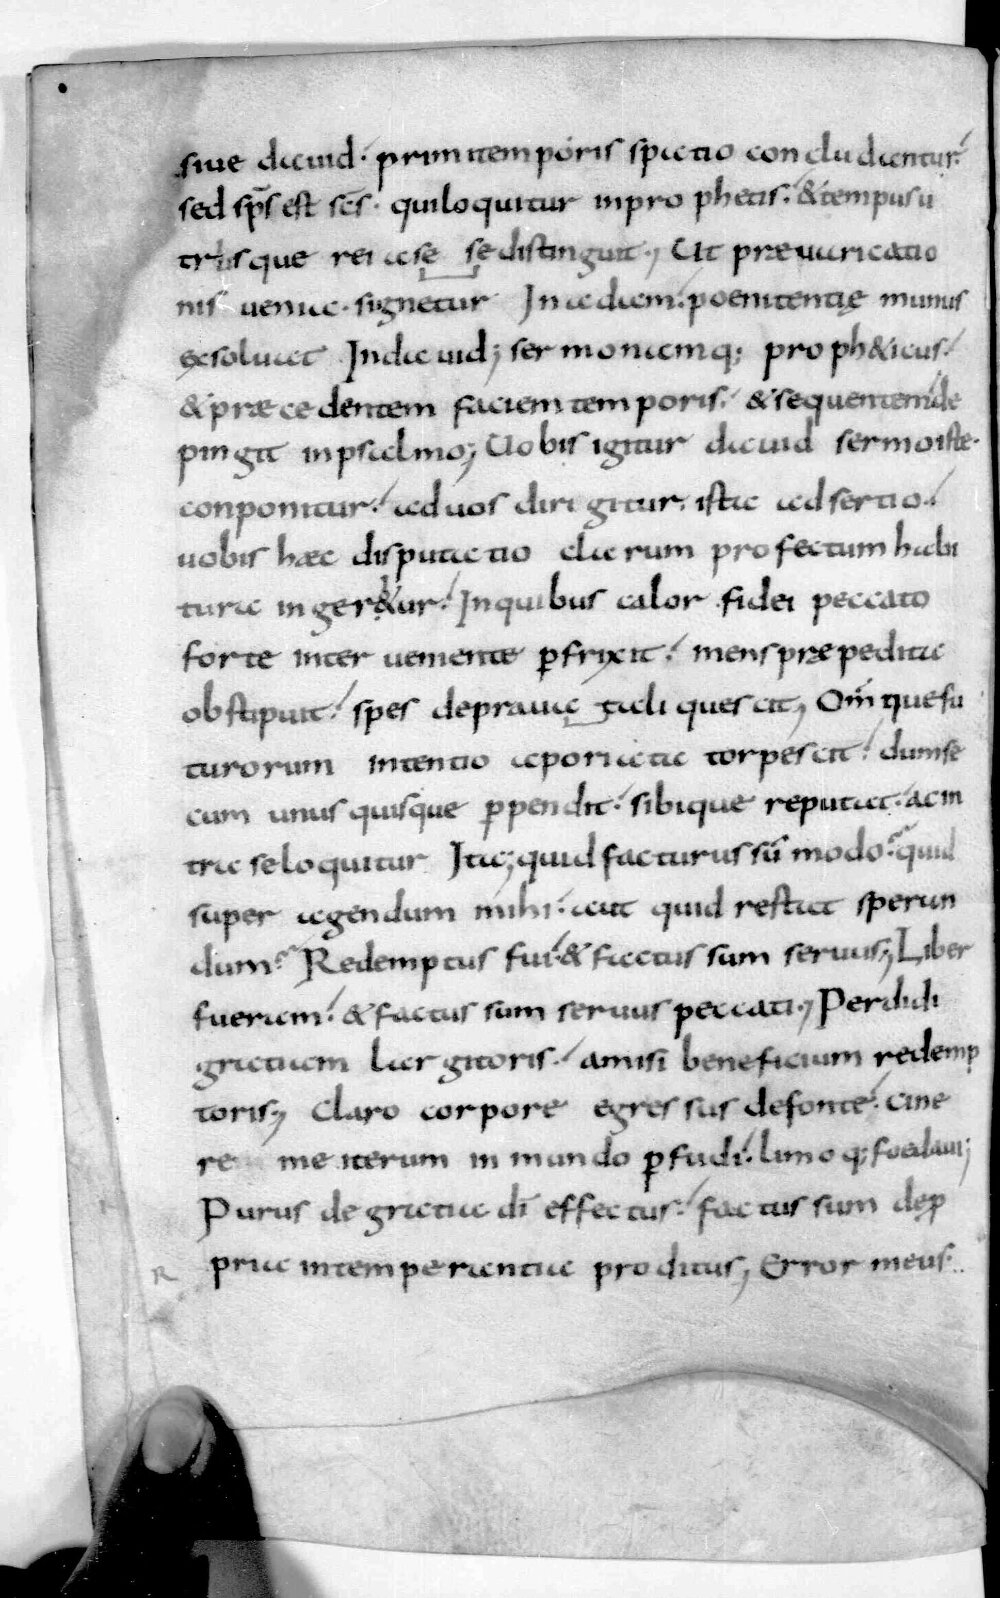 siue dauid· prim temporis spatio concludantur·
sed sps̄ est sc̄s· quiloquitur inprophetis· &tempusu
triusque rei ase sedistinguit; Ut præuaricatio
nis uenia· signetur Inadam· poenitentię munus
exsoluat Indauid; sermonemq; proph&icus·
&præcedentem faciem temporis· &sequentem de
pingit inpsalmo; Uobis igitur dauid sermo iste·
conponitur· aduos dirigitur· ista adsertio·
uobis hæc disputatio clarum profectum habi
tura inger&ur· Inquibus calor fidei peccato
forte interueniente pfrixit· mens præpedita
obstipuit· spes deprauata liquescit; Om̄ que fu
turorum intentio aporiata torpescit· dum se
cum unus quisque ppendit· sibique reputat· ac in
tra se loquitur Ita; quid facturus sū modo· quid
super agendum mihi· aut quid restat speran
dum· Redemptus fui· & factus sum seruus; Liber
fueram· & factus sum seruus peccati; Perdidi
gratiam largitoris· amisi beneficium redemp
toris; Claro corpore egressus defonte· cine
re me iterum inmundo pfudi· limoq; foedaui;
Purus de gratia dī effectus· factus sum dep
pria intemperantia proditus; Error meus·
R